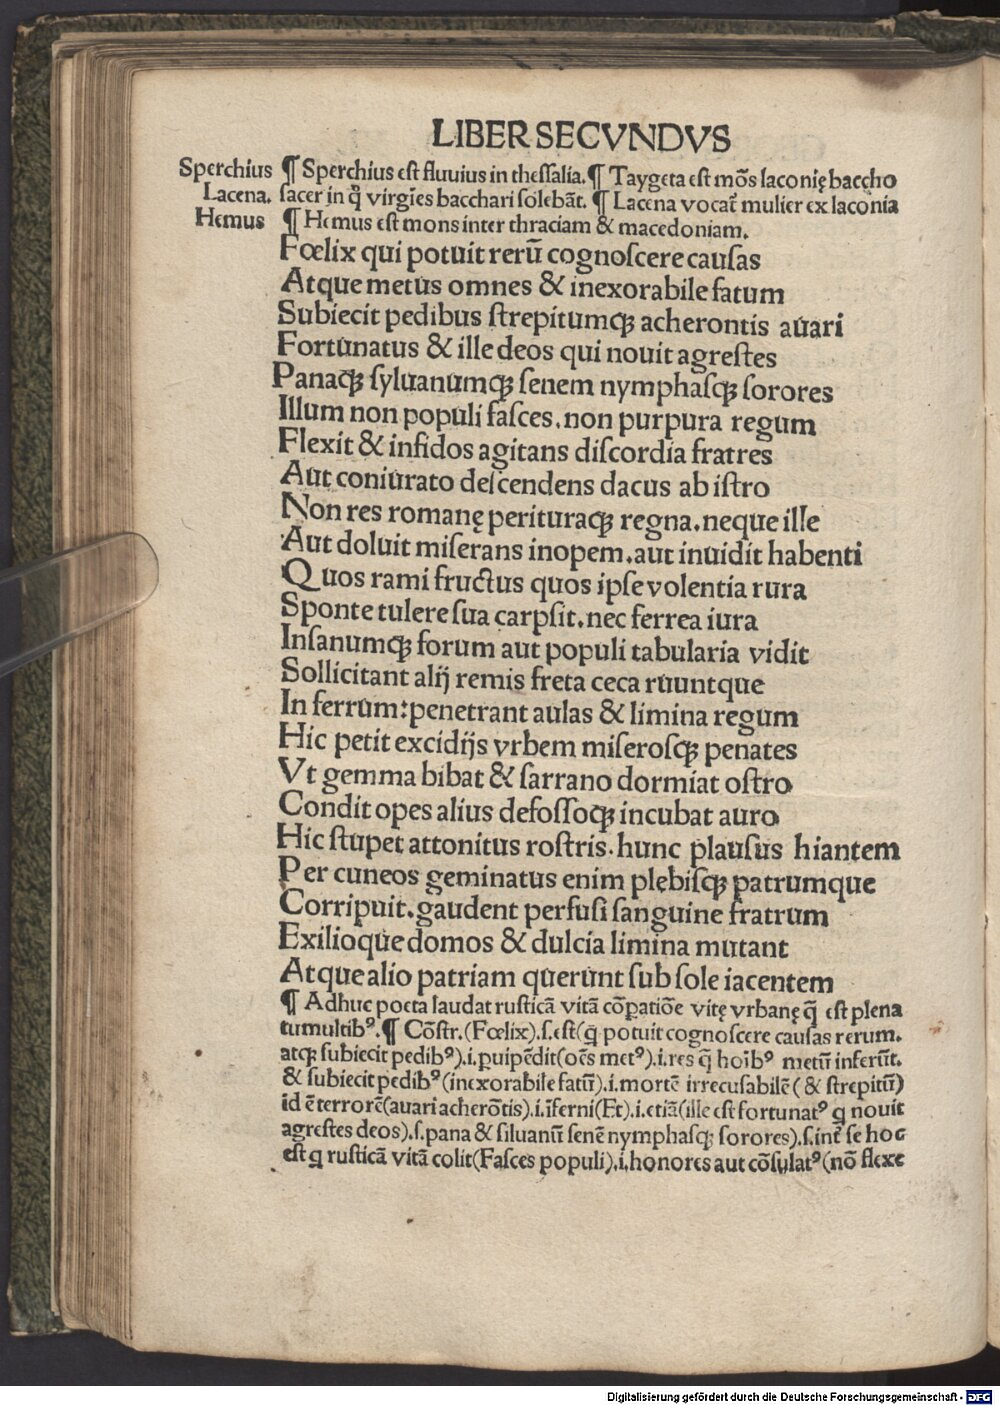 LIBER SECVNDVS
Sperchius ¶ Sperchius est fluuius in thessalia. ¶ Taygeta est mōs laconię baccho
Lacena. sacer in q̄ virgīes bacchari solebāt. ¶ Lacena vocat᷑ mulier ex laconia
Hemus ¶ Hemus est mons inter thraciam & macedoniam.
Fœlix qui potuit rerū cognoscere causas
Atque metus omnes & inexorabile fatum
Subiecit pedibus strepitumqꝫ acherontis auari
Fortunatus & ille deos qui nouit agrestes
Panaqꝫ syluanumqꝫ senem nymphasqꝫ sorores
Illum non populi fasces. non purpura regum
Flexit & infidos agitans discordia fratres
Aut coniurato descendens dacus ab istro
Non res romanę perituraqꝫ regna. neque ille
Aut doluit miserans inopem. aut inuidit habenti
Quos rami fructus quos ipse volentia rura
Sponte tulere sua carpsit. nec ferrea iura
Insanumqꝫ forum aut populi tabularia vidit
Sollicitant alij remis freta ceca ruuntque
In ferrum: penetrant aulas & limina regum
Hic petit excidijs vrbem miserosqꝫ penates
Vt gemma bibat & sarrano dormiat ostro
Condit opes alius defossoqꝫ incubat auro
Hic stupet attonitus rostris. hunc plausus hiantem
Per cuneos geminatus enim plebisqꝫ patrumque
Corripuit. gaudent perfusi sanguine fratrum
Exilioque domos & dulcia limina mutant
Atque alio patriam querunt sub sole iacentem
¶ Adhuc poeta laudat rusticā vitā cōꝑatiōe vitę vrbanę q̄ est plena
tumultibꝰ. ¶ Cōstr. (Fœlix). s. est (q potuit cognoscere causas rerum.
atqꝫ subiecit pedibꝰ). i. ꝓuipēdit (oēs metꝰ). i. res q̄ hoībꝰ metū inferūt.
& subiecit pedibꝰ (inexorabile fatū). i. mortē irrecusabilē (& strepitū)
id ē terrorē (auari acherōtis). i. īferni (Et). i. etiā (ille est fortunatꝰ q nouit
agrestes deos). s. pana & siluanū senē nymphasqꝫ sorores). s. int᷑ se hoc
est q rusticā vitā colit (Fasces populi). i. honores aut cōsulatꝰ (nō flexe
Digitalisierung gefördert durch die Deutsche Forschungsgemeinschaft - DFG